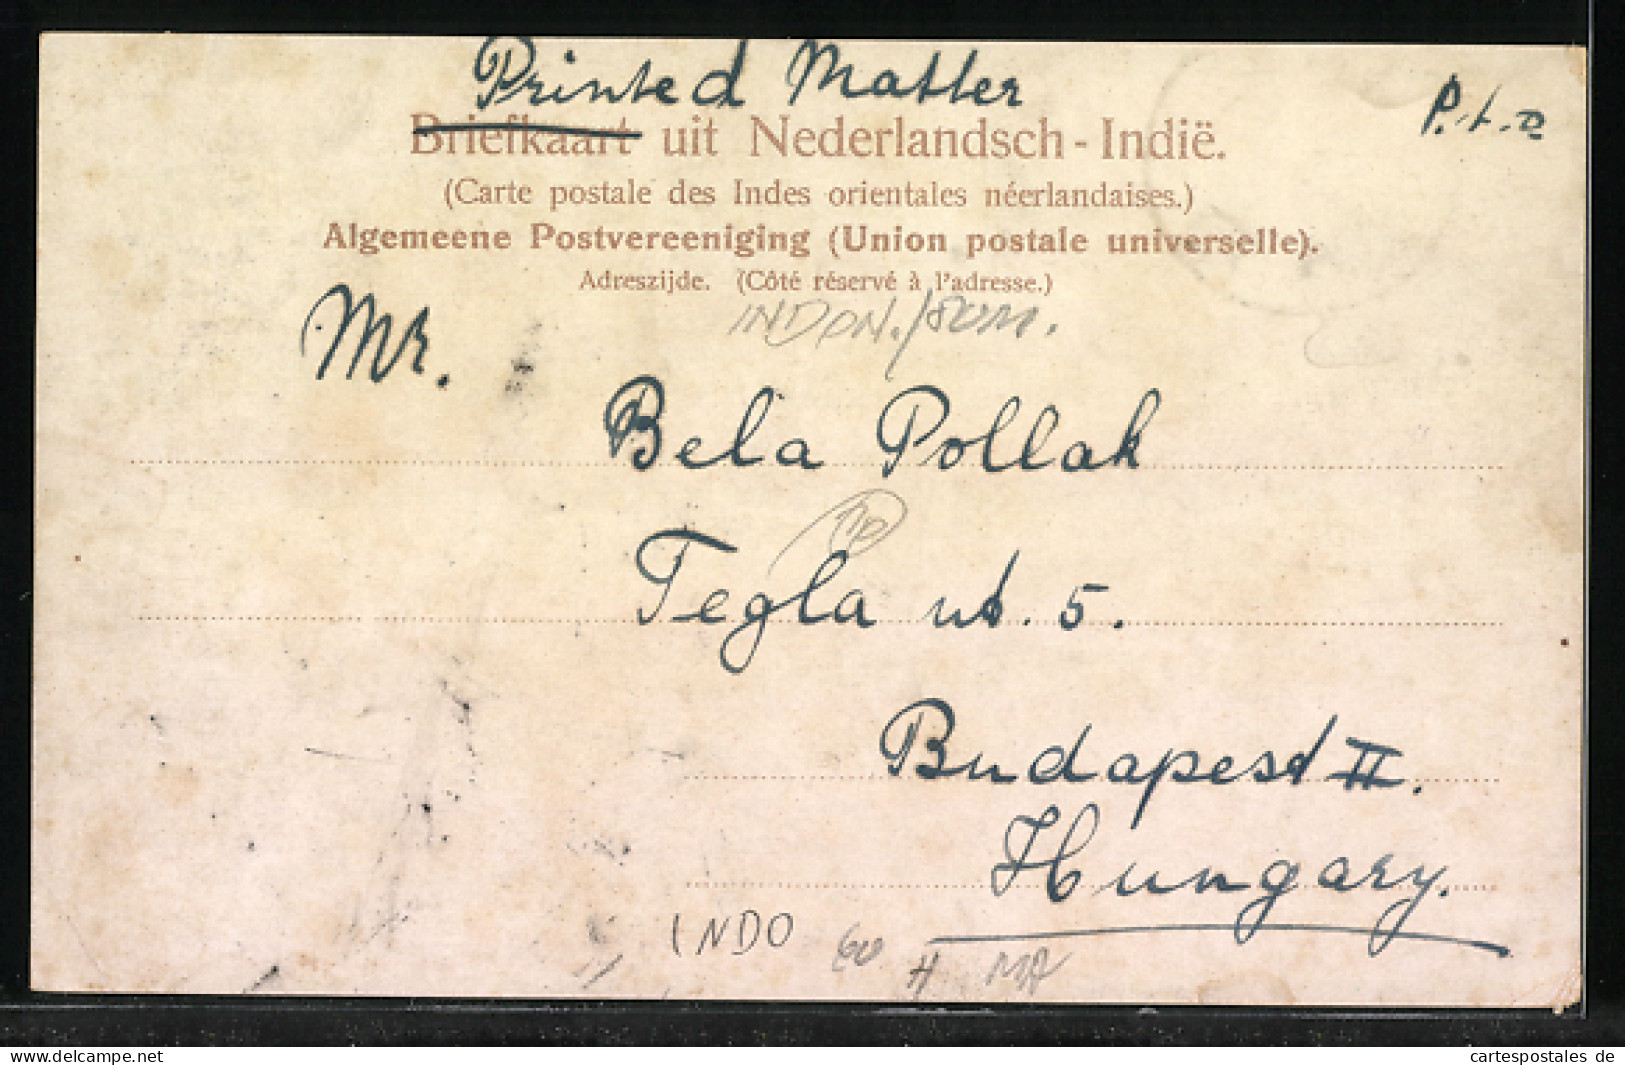 Printed Matter
Briefkaart uit Nederlandsch-Indië.
(Carte postale des Indes orientales néerlandaises.)
Algemeene Postvereeniging (Union postale universelle).
Adreszijde. (Côté réservé à l'adresse.)
INDON./
Mr.
Bela Pollak
Tegla ut. 5.
Budapest II.
Hungary.
INDO 60 H
www.cartespostales.de
cartespostales de